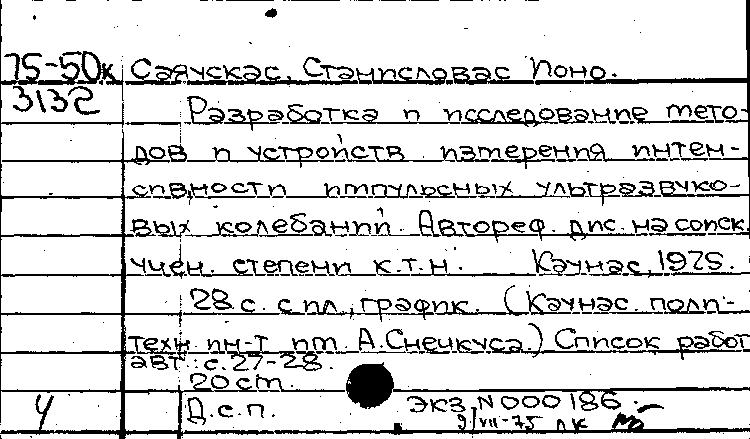 75-50к Саяускас, Станисловас Ионо.
3132
Разработка и исследование мето-
дов и устройств измерения интен-
сивности импульсных ультразвуко-
вых колебаний. Автореф. дис. на соиск.
учен. степени к.т.н. Каунас, 1975.
28 с. с ил., график. (Каунас. поли-
техн. ин-т им. А. Снечкуса.) Список работ
авт.: с.27-28.
20 ст.
Ч Д.с.п. Экз. N 000186.-
9/VII-75 ЛК